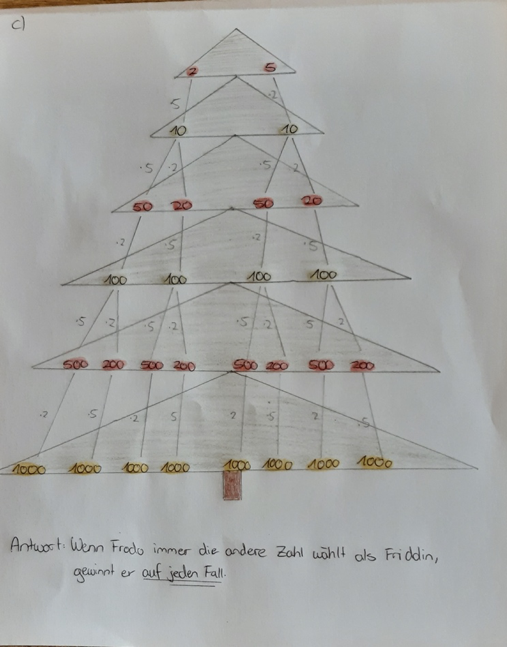 c)
2 5
5 ·2
10 10
·5 ·2 ·5 2
50 20 50 20
·2 ·5 ·2 ·5
100 100 100 100
·5 ·2 ·5 ·2 ·5 ·2 5 2
500 200 500 200 500 200 500 200
·2 ·5 ·2 5 2 ·5 2 ·5
1000 1000 1000 1000 1000 1000 1000 1000
Antwort: Wenn Frodo immer die andere Zahl wählt als Friddin,
gewinnt er auf jeden Fall.